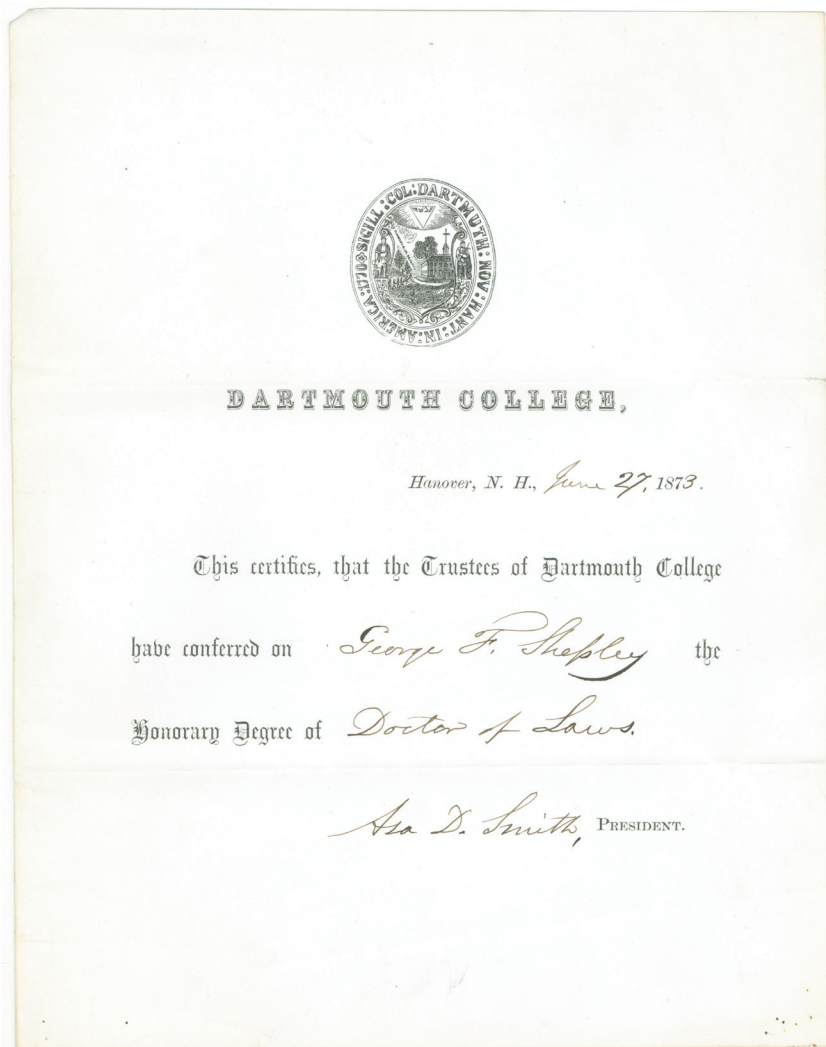 SIGILL : COL : DARTMUTH : NOV : HANT : IN : AMERICA : 1770
DARTMOUTH COLLEGE,
Hanover, N. H., June 27, 1873.
This certifies, that the Trustees of Dartmouth College
have conferred on George F. Shepley the
Honorary Degree of Doctor of Laws.
Asa D. Smith, PRESIDENT.